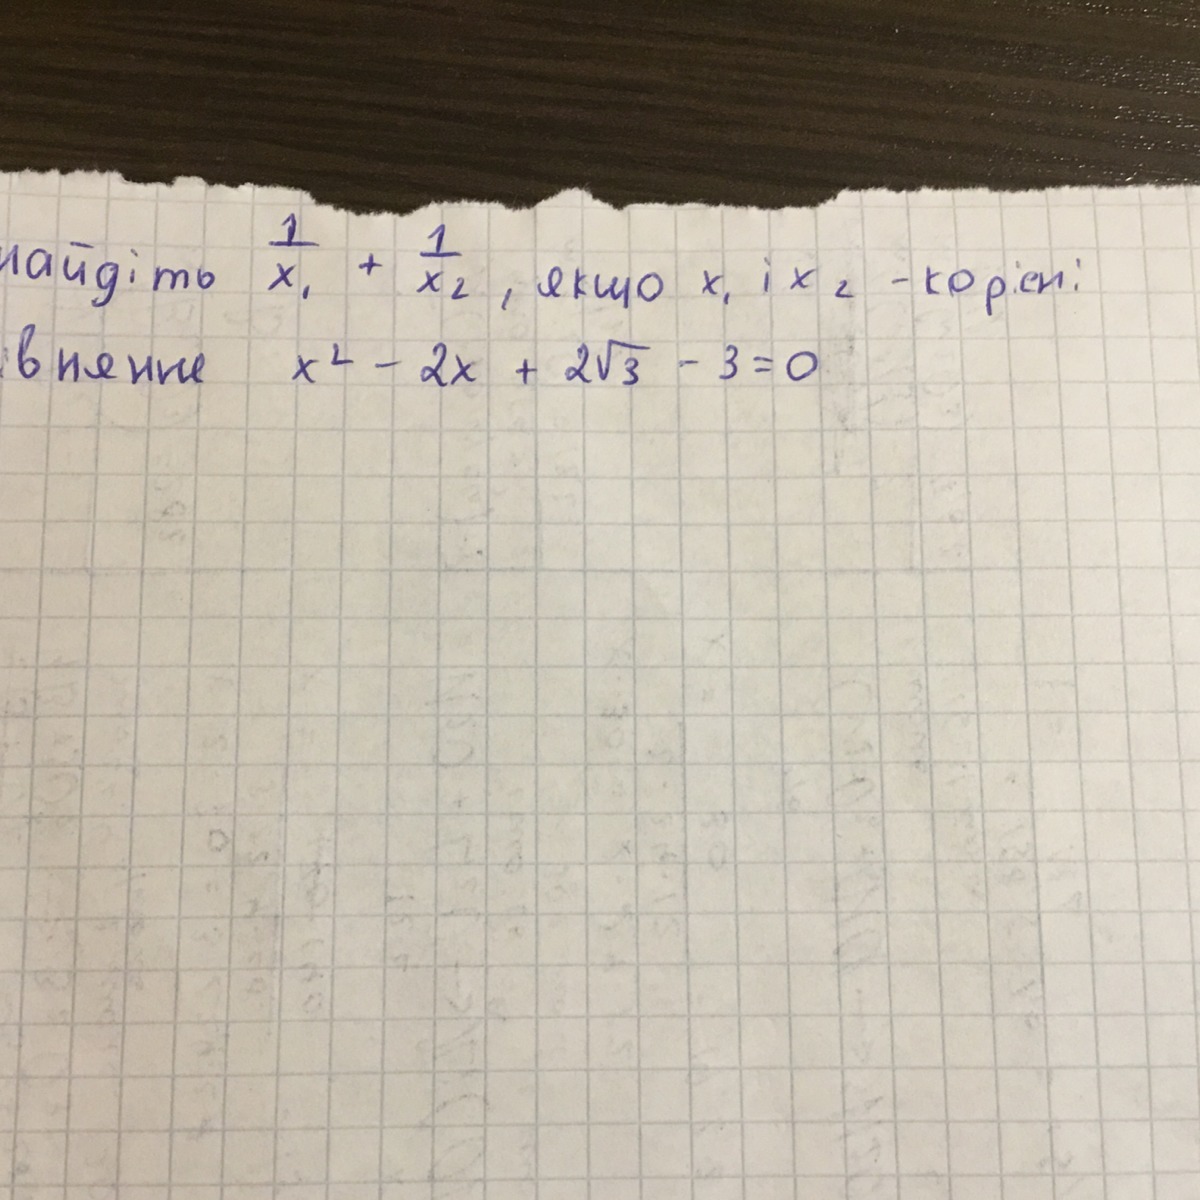 найдіть 1/x₁ + 1/x₂, якщо x₁ і x₂ - корєні
івняння x² - 2x + 2√3 - 3 = 0